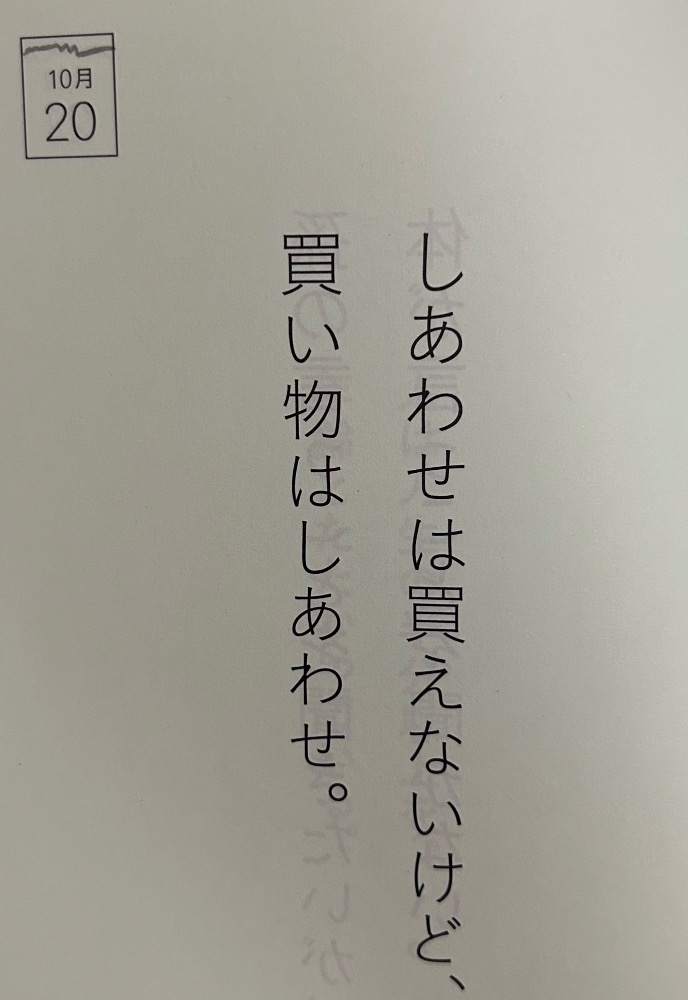 10月
20
しあわせは買えないけど、
買い物はしあわせ。